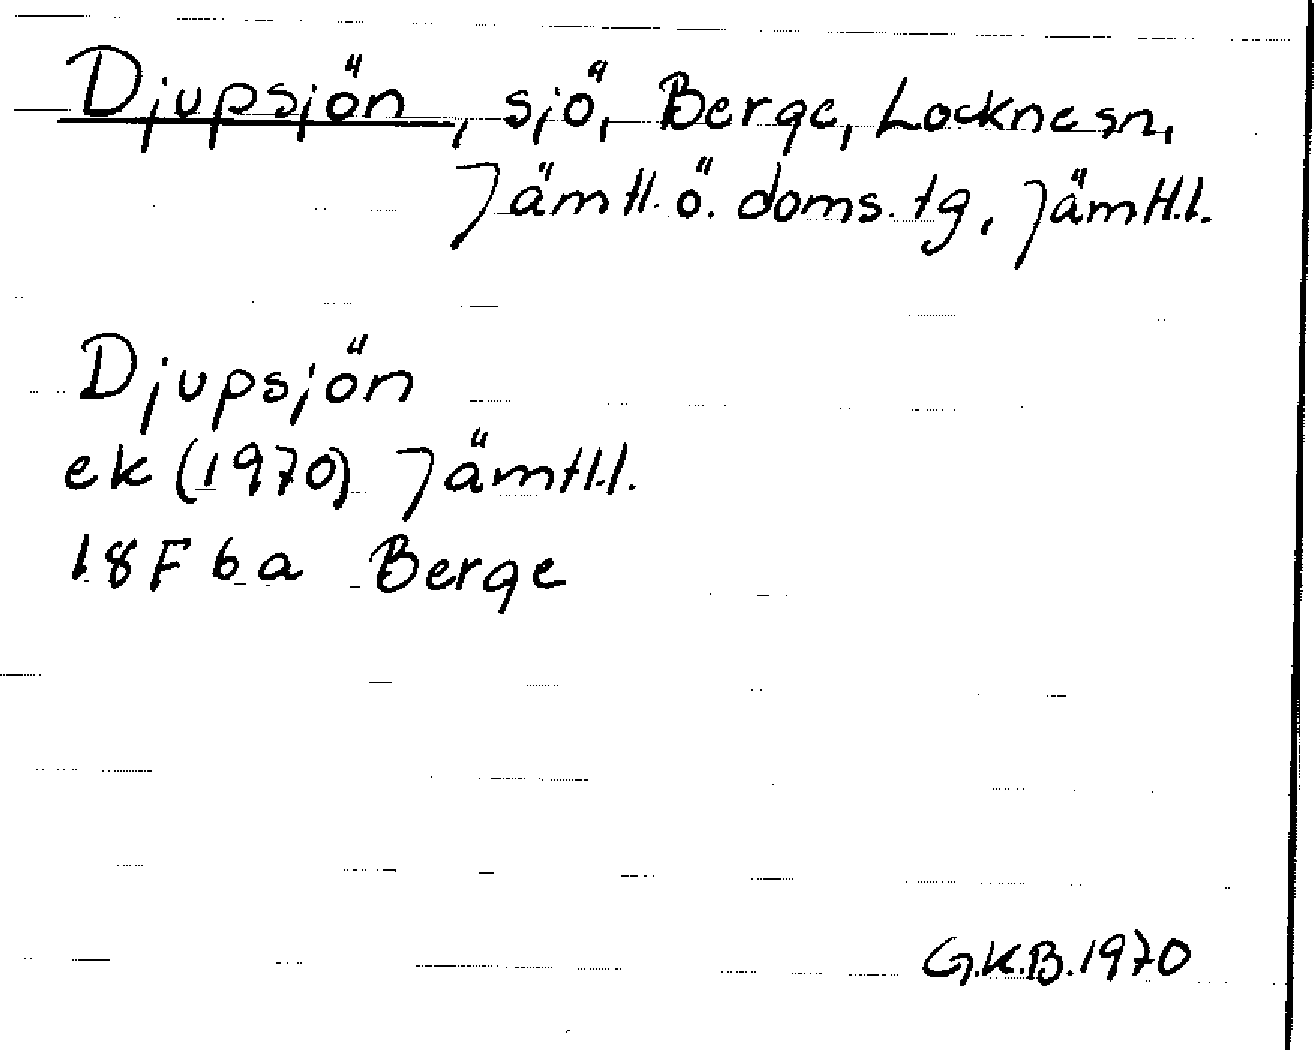 Djupsjön, sjö, Berge, Locknesn,
Jämtl. ö. doms. tg, Jämtl.l.
Djupsjön
ek (1970) Jämtl.l.
18F 6a Berge
G.K.B. 1970